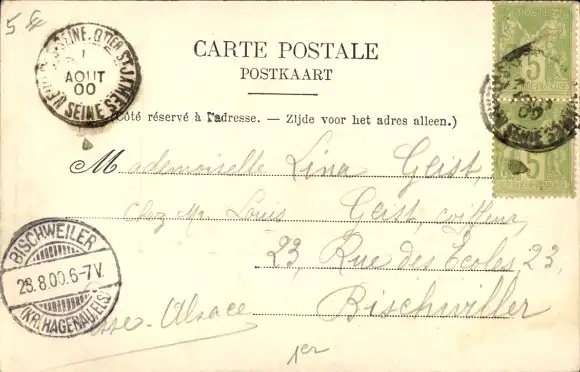 5 fr
CARTE POSTALE
POSTKAART
(Côté réservé à l'adresse. — Zijde voor het adres alleen.)
SEINE. QTIER ST JAMES
AOUT
00
SEINE
5
5
Mademoiselle Lina Geist,
Chez Mr. Louis Geist, coiffeur,
23, Rue des Ecoles 23,
Bischwiller
Alsace
1er
BISCHWEILER
28.8.00.6-7V.
(KR. HAGENAU, ELS)